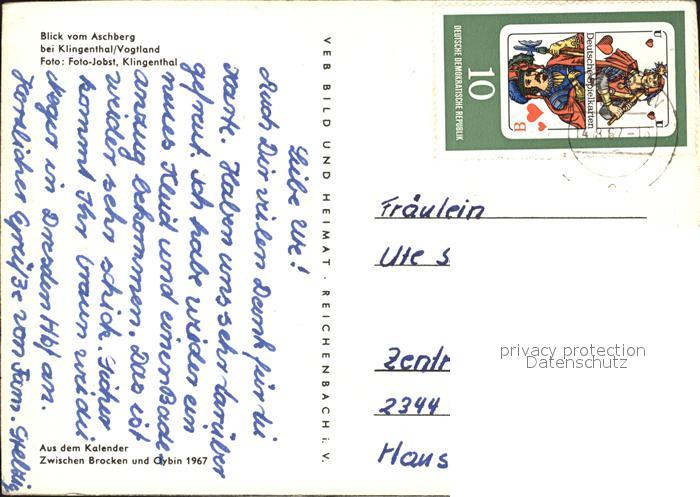 Blick vom Aschberg
bei Klingenthal/Vogtland
Foto: Foto-Jobst, Klingenthal
Liebe Ute!
Auch Dir vielen Dank für die
Karte. Haben uns sehr darüber
gefreut. Ich habe wieder ein
neues Kleid und einen Bade
anzug bekommen. Das ist
wieder sehr schick. Sicher
kommt Ihr braun wie die
Neger in Dresden Hbf an.
Herzlicher Grüße von Fam.
Aus dem Kalender
Zwischen Brocken und Oybin 1967
VEB BILD UND HEIMAT · REICHENBACH i. V.
DEUTSCHE DEMOKRATISCHE REPUBLIK
10
Deutsche Spielkarten
B
U
U
Fräulein
Ute S
Zentr
2344
Haus
privacy protection
Datenschutz